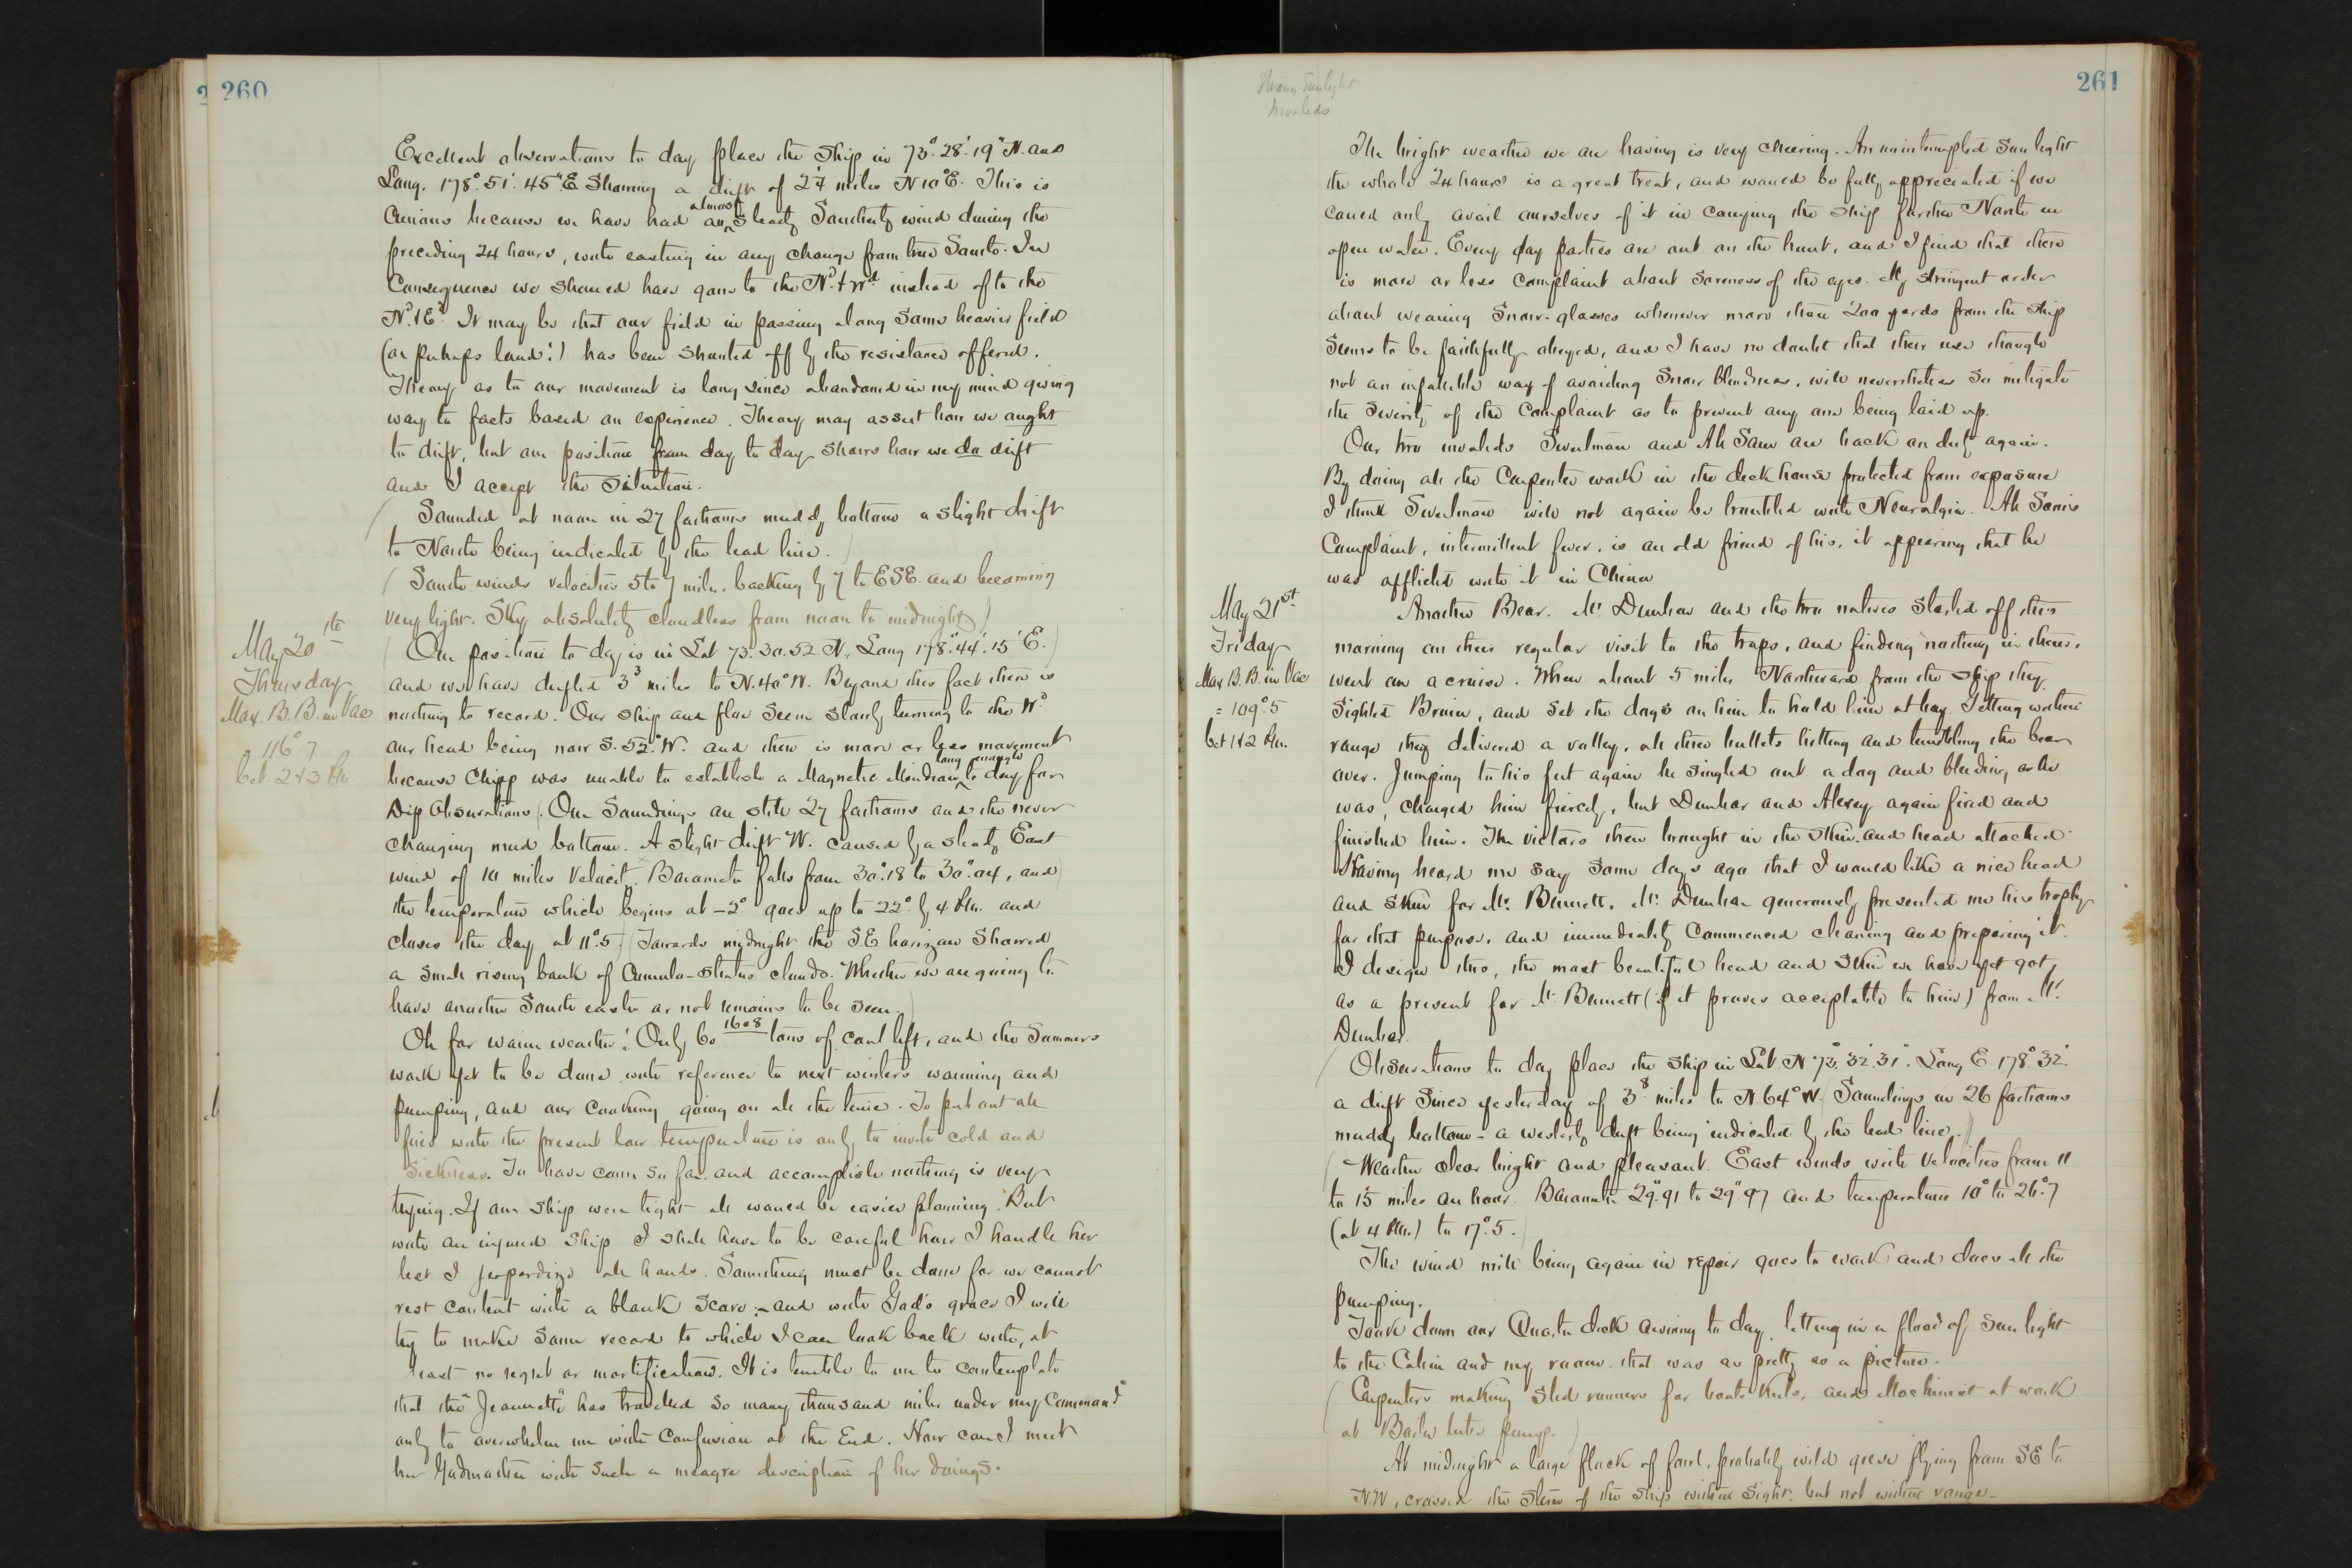 260
Excellent observations to day place the Ship in 73°.28'.19" N. and
Long. 178°.51'.45" E Showing a drift of 2 4 miles N10°E. This is
Curious because we have had almost a steady Southerly wind during the
preceding 24 hours, with easting in any change from true South. In
Consequence we should have gone to the Nd & Wd instead of to the
Nd & Ed. It may be that our field in passing along some heavier field
(or perhaps land!) has been shunted off by the resistance offered.
Theory as to our movement is long since abandoned in my mind giving
way to facts based on experience. Theory may assert how we ought
to drift, but our position from day to day shows how we do drift
and I accept the situation.
(Sounded at noon in 27 fathoms muddy bottom a slight drift
to North being indicated by the lead line.)
(South winds velocities 5 to 7 miles. backing by 7 to ESE. and becoming
very light. Sky absolutely cloudless from noon to midnight)
May 20th
Thursday
Max. B. B. in Vac
116°.7
bet. 2 & 3 PM
(Our position to day is in Lat 73.30.52 N. Long 178°.44'.15" E.)
and we have drifted 3 3 miles to N.40°W. Beyond this fact there is
nothing to record. Our ship and floe seem slowly turning to the Wd
our head being now S.52°W. and there is more or less movement
because Chipp was unable to establish a Magnetic Meridian long enough to day for
Dip Observations. (Our Soundings are still 27 fathoms and the never
changing mud bottom. A slight drift W. caused by a steady East
wind of 10 miles Velocity. Barometer falls from 30".18 to 30".04, and)
the temperature which begins at -2° goes up to 22° by 4 PM. and
closes the day at 11°.5.) (Towards midnight the S.E horizon Showed
a small rising bank of Cumulo-stratus clouds. Whether we are going to
have another South easter or not remains to be seen.)
Oh for warm weather! Only 60 1608 tons of coal left, and the Summers
work yet to be done with reference to next winters warming and
pumping, and our Cooking going on all the time. To put out all
fires with the present low temperature is only to invite cold and
sickness. To have come so far and accomplish nothing is very
trying. If our ship were tight all would be easier planning. But
with an injured ship I shall have to be careful how I handle her
lest I jeopardize all hands. Something must be done for we cannot
rest content with a blank score; - and with God's grace I will
try to make some record to which I can look back with, at
least no regret or mortification. It is terrible to me to contemplate
that the "Jeannette" has travelled so many thousand miles under my Command
only to overwhelm me with Confusion at the End. How can I meet
her Godmother with such a meagre description of her doings.
261
Strong Sunlight
Invalids
The bright weather we are having is very cheering. An uninterrupted Sun light
the whole 24 hours is a great treat, and would be fully appreciated if we
could only avail ourselves of it in carrying the ship farther North in
open water. Every day parties are out on the hunt, and I find that there
is more or less complaint about soreness of the eyes. My stringent order
about wearing Snow-glasses whenever more than 200 yards from the ship
seems to be faithfully obeyed, and I have no doubt that their use though
not an infallible way of avoiding Snow blindness, will nevertheless so mitigate
the severity of the complaint as to prevent any one being laid up.
Our two invalids Sweetman and Ah Sam are back on duty again.
By doing all the Carpenter work in the deck house protected from exposure
I think Sweetman will not again be troubled with Neuralgia. Ah Sam's
Complaint, intermittent fever, is an old friend of his, it appearing that he
was afflicted with it in China
May 21st
Friday
Max B.B. in Vac
= 109°.5
bet 1 & 2 PM.
Another Bear. Mr. Dunbar and the two natives started off this
morning on their regular visit to the traps, and finding nothing in them,
went on a cruise. When about 5 miles Northward from the ship they
sighted Bruin, and set the dogs on him to hold him at bay. Getting within
range they delivered a volley, all three bullets hitting and tumbling the bear
over. Jumping to his feet again he singled out a dog and bleeding as he
was, charged him fiercely, but Dunbar and Alexey again fired and
finished him. The victors then brought in the skin and head attached.
Having heard me say some days ago that I would like a nice head
and skin for Mr. Bennett. Mr. Dunbar generously presented me his trophy
for that purpose, and immediately commenced cleaning and preparing it.
I design this, the most beautiful head and skin we have yet got,
as a present for Mr. Bennett (if it proves acceptable to him) from Mr.
Dunbar.
(Observations to day place the ship in Lat. N 73°.32'.31". Long E. 178°.32'.
a drift since yesterday of 3 8 miles to N.64°W. (Soundings in 26 fathoms
muddy bottom - a westerly drift being indicated by the lead line.)
(Weather clear bright and pleasant. East winds with velocities from 11
to 15 miles an hour. Barometer 29".91 to 29".97 and temperature 10° to 26°.7
(at 4 PM.) to 17°.5.)
The wind mill being again in repair goes to work and does all the
pumping.
Took down our Quarter deck awning to day, letting in a flood of sun light
to the Cabin and my room that was as pretty as a picture.
(Carpenters making sled runners for boats keels, and Machinist at work
at Bailer bilge pump.)
At midnight a large flock of fowl, probably wild geese flying from SE to
N.W, crossed the stern of the ship within sight, but not within range.